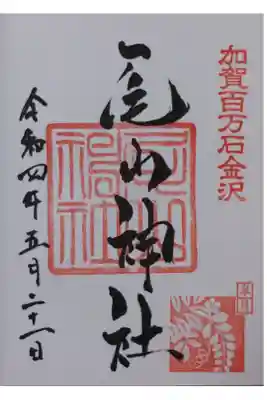 加賀百万石金沢
尾山神社
尾山神社
令和四年五月二十一日